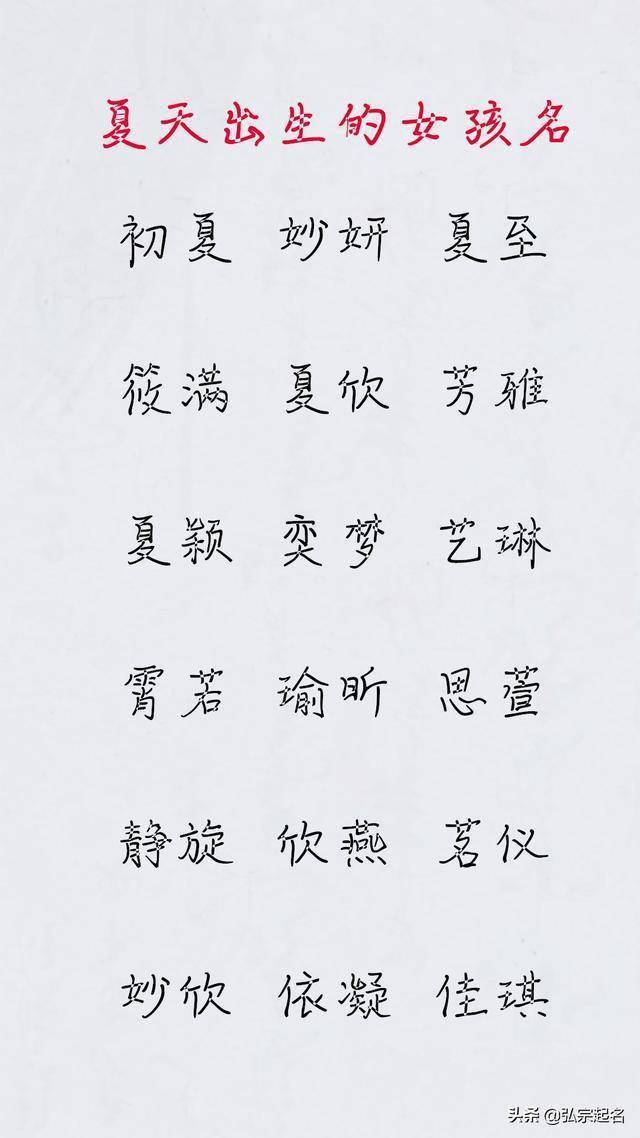 夏天出生的女孩名
初夏 妙妍 夏至
筱满 夏欣 芳雅
夏颖 奕梦 艺琳
霄若 瑜昕 思萱
静旋 欣燕 茗仪
妙欣 依凝 佳琪
头条 @弘宗起名